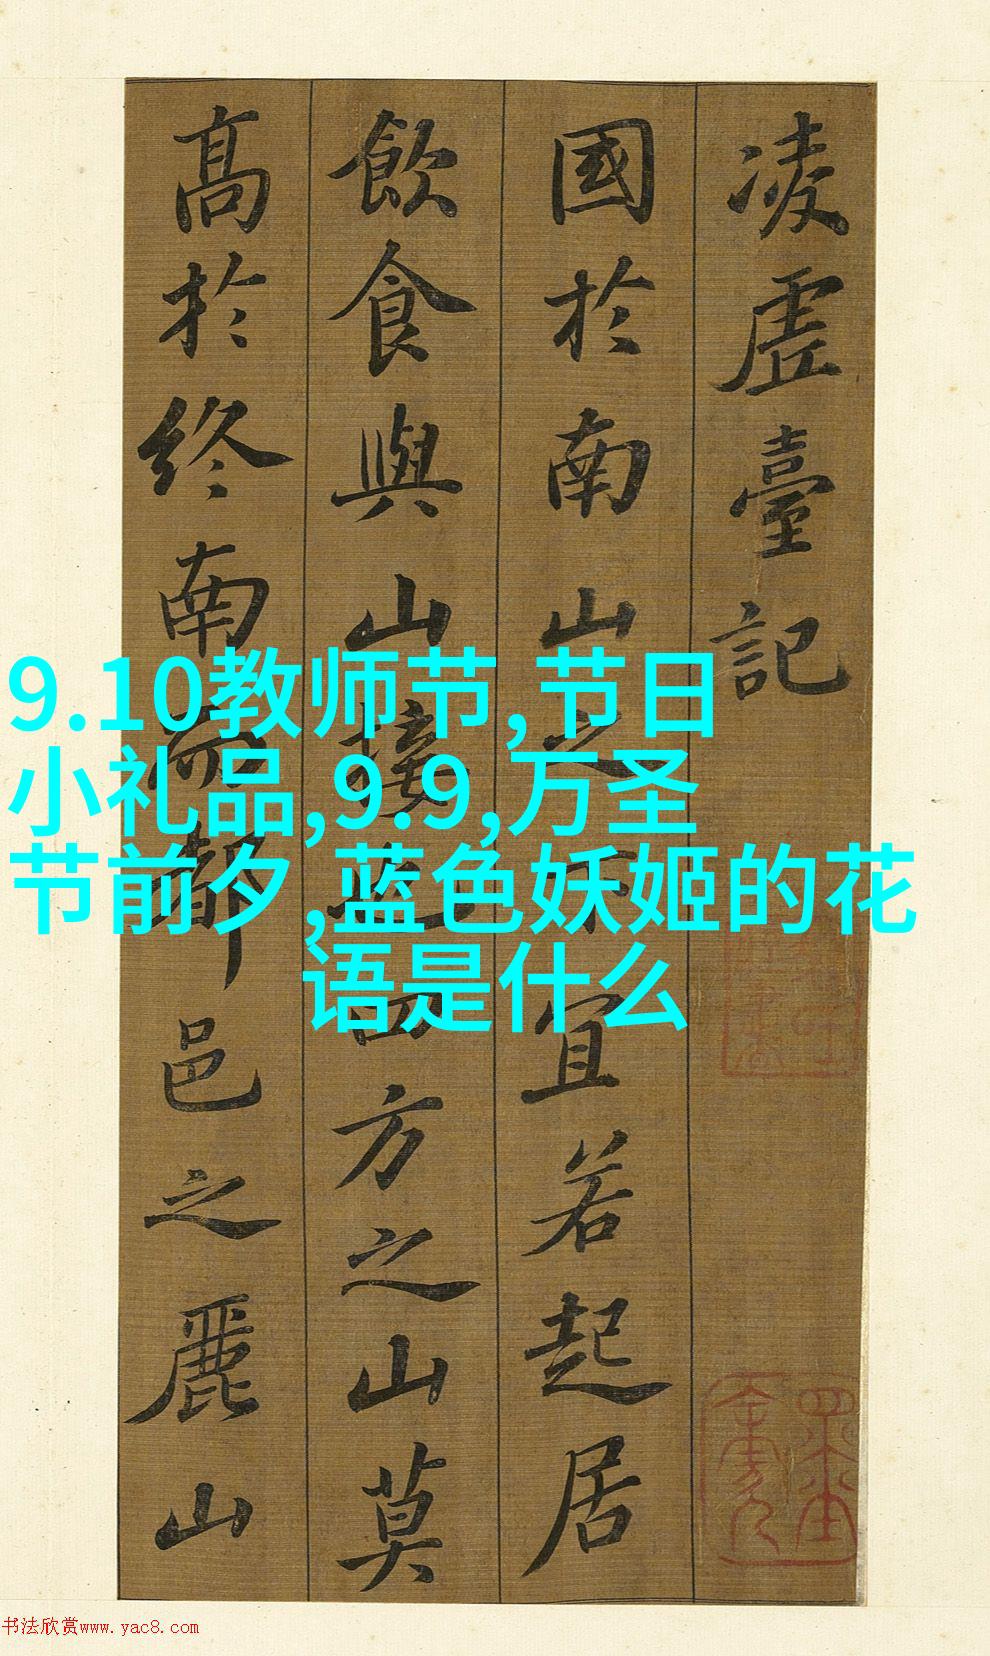 凌虛臺記
國於南山之下宜若起居
飲食與山接也四方之山莫
高於終南而都邑之麗山
9.10教师节,节日
小礼品,9.9,万圣
节前夕,蓝色妖姬的花
语是什么
书法欣赏www.yac8.com